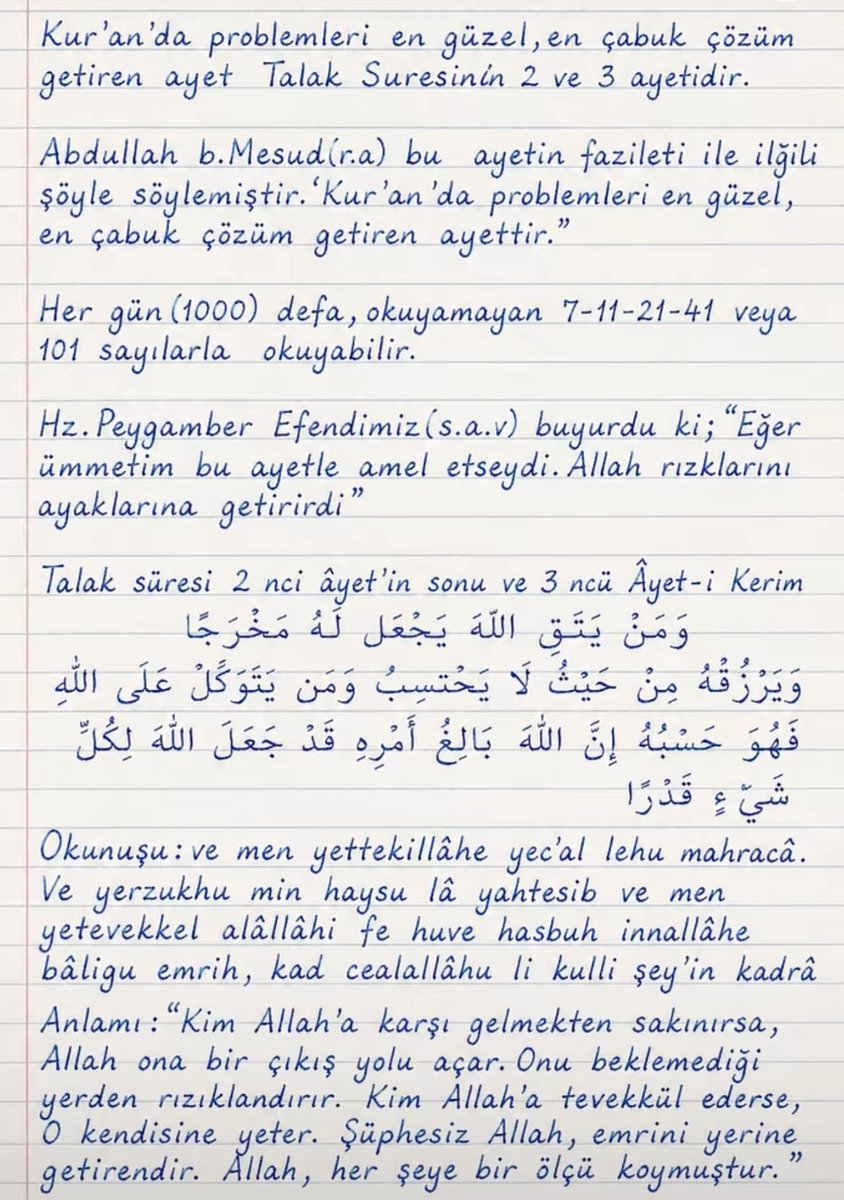 Kur'an'da problemleri en güzel, en çabuk çözüm
getiren ayet Talak Suresinin 2 ve 3 ayetidir.
Abdullah b.Mesud(r.a) bu ayetin fazileti ile ilğili
şöyle söylemiştir.‘Kur'an'da problemleri en güzel,
en çabuk çözüm getiren ayettir.”
Her gün (1000) defa, okuyamayan 7-11-21-41 veya
101 sayılarla okuyabilir.
Hz. Peygamber Efendimiz(s.a.v) buyurdu ki; “Eğer
ümmetim bu ayetle amel etseydi. Allah rızklarını
ayaklarına getirirdi”
Talak süresi 2 nci âyet'in sonu ve 3 ncü Âyet-i Kerim
وَمَنْ يَتَقِ اللّهَ يَجْعَل لَهُ مَخْرَجًا
وَيَرْزُقْهُ مِنْ حَيْثُ لَا يَحْتسِبُ وَمَن يَتَوَكَّلْ عَلَى اللّهِ
فَهُوَ حَسْبُهُ إِنَّ اللّهَ بَالِغُ أَمْرِهِ قَدْ جَعَلَ اللّهَ لِكُلِّ
شَيّءٍ قَدْرًا
Okunuşu: ve men yettekillâhe yec'al lehu mahracâ.
Ve yerzukhu min haysu lâ yahtesib ve men
yetevekkel alâllâhi fe huve hasbuh innallâhe
bâligu emrih, kad cealallâhu li kulli şey'in kadrâ
Anlamı: “Kim Allah'a karşı gelmekten sakınırsa,
Allah ona bir çıkış yolu açar. Onu beklemediği
yerden rızıklandırır. Kim Allah'a tevekkül ederse,
O kendisine yeter. Şüphesiz Allah, emrini yerine
getirendir. Allah, her şeye bir ölçü koymuştur.”